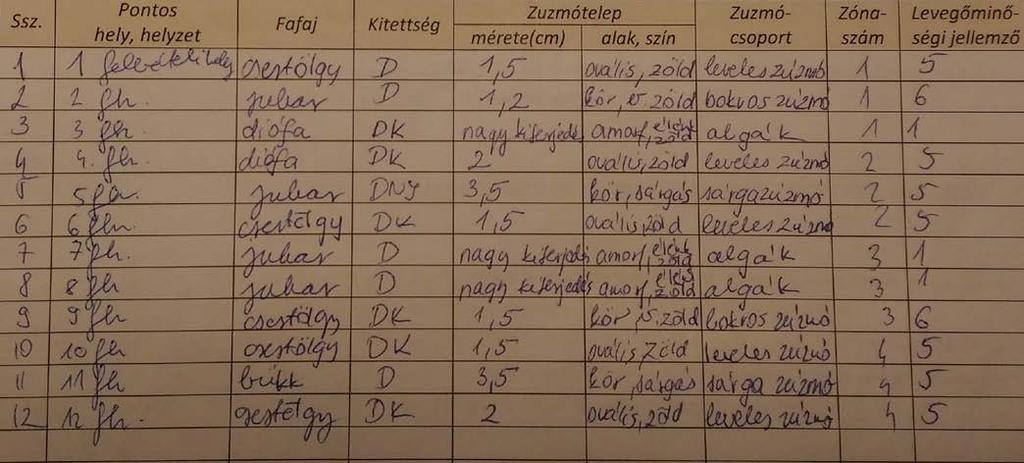 Ssz. Pontos hely, helyzet Fafaj Kitettség Zuzmótelep mérete(cm) alak, szín Zuzmó-csoport Zóna-szám Levegőminő-ségi jellemző
1 1 felvételi hely csertölgy D 1,5 ovális, zöld leveles zúzmó 1 5
2 2 fh. juhar D 1,2 kör, v. zöld bokros zúzmó 1 6
3 3 fh. diófa DK nagy kiterjedés amorf, élénk zöld algák 1 1
4 4. fh. diófa DK 2 ovális, zöld leveles zúzmó 2 5
5 5 fh. juhar DNY 3,5 kör, sárgás sárgazúzmó 2 5
6 6 fh. csertölgy DK 1,5 ovális, zöld leveles zúzmó 2 5
7 7 fh. juhar D nagy kiterjedés amorf, élénk zöld algák 3 1
8 8 fh juhar D nagy kiterjedés amorf, élénk zöld algák 3 1
9 9 fh csertölgy DK 1,5 kör, v. zöld bokros zúzmó 3 6
10 10 fh csertölgy DK 1,5 ovális zöld leveles zúzmó 4 5
11 11 fh bükk D 3,5 kör, sárgás sárga zúzmó 4 5
12 12 fh. csertölgy DK 2 ovális, zöld leveles zúzmó 4 5